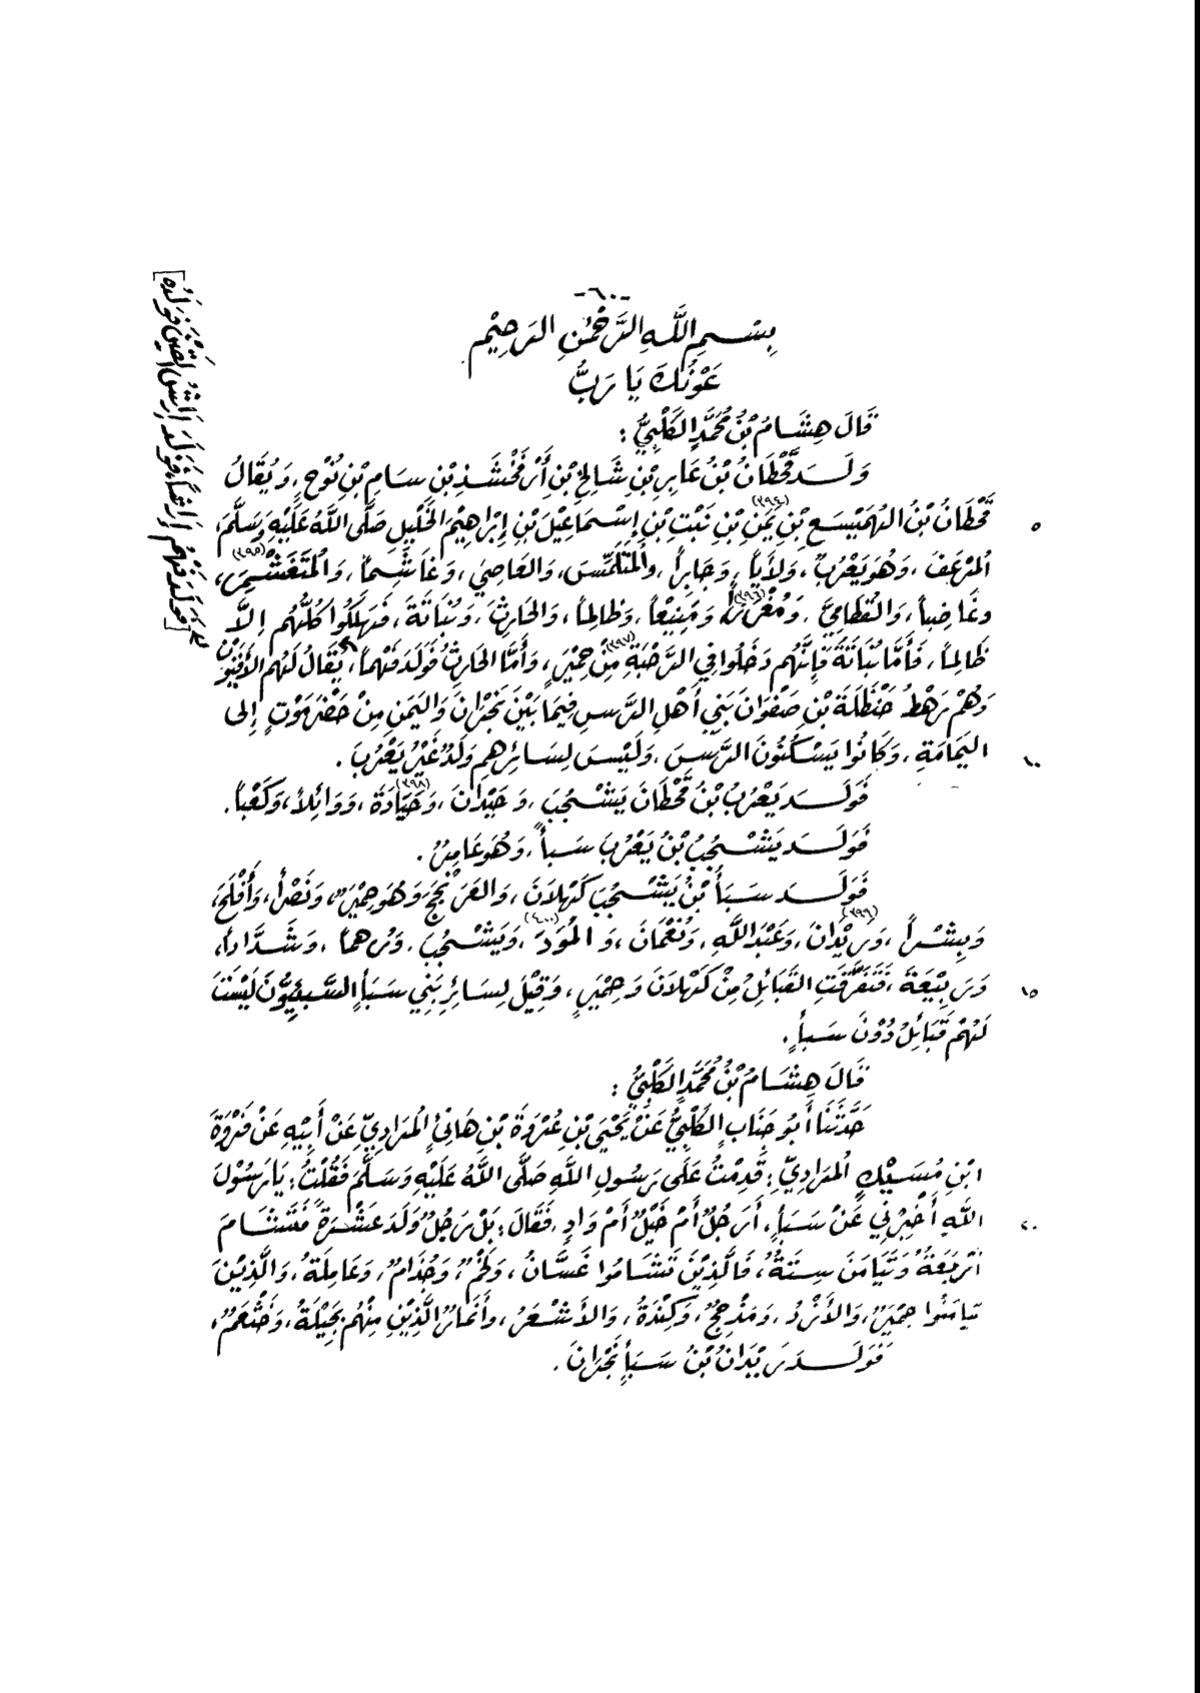 -٦٠-
بِسْمِ اللَّهِ الرَّحْمٰنِ الرَّحِيْمِ
عَوْنُكَ يَا رَبُّ
قَالَ هِشَامُ بْنُ مُحَمَّدٍ الكَلْبِيُّ :
وَلَدَ قَحْطَانُ بْنُ عَابِرِ بْنِ شَالِخَ بْنِ أَرْفَخْشَذِ بْنِ سَامِ بْنِ نُوْحٍ، وَيُقَالُ
قَحْطَانُ بْنُ الهَمَيْسَعِ بْنِ يَمَنِ (٣٩٤) بْنِ نَبْتِ بْنِ إِسْمَاعِيْلَ بْنِ إِبْرَاهِيْمَ الخَلِيْلِ صَلَّى اللَّهُ عَلَيْهِ وَسَلَّمَ، ٥
المُرْعَفَ، وَهُوَ يَعْرُبُ، وَلَأْياً، وَجَابِراً، وَالمُتَلَمِّسَ، وَالعَاصِيَ، وَغَاشِماً، وَالمُتَغَشْمِرَ (٣٩٥)،
وغَاضِباً، وَالقَطَامِيَّ، وَمُعْزِزاً (٣٩٦) وَمَنِيْعاً، وَظَالِماً، وَالحَارِثَ، وَنُبَاتَةَ، فَهَلَكُوا كُلُّهُم إِلَّا
ظَالِماً، فَأَمَّا نُبَاتَةُ فَإِنَّهُم دَخَلُوا فِي الرَّحْبَةِ (٣٩٧) مِنْ حِمْيَرٍ، وَأَمَّا الحَارِثُ فَوَلَدَ فَهْماً، يُقَالُ لَهُم الأَفْيُوْنُ
وَهُمْ رَهْطُ حَنْظَلَةَ بْنِ صَفْوَانَ بَنِي أَهْلِ الرَّسِ فِيمَا بَيْنَ نَجْرَانَ وَاليَمَنِ مِنْ حَضْرَمَوْتَ إِلى
اليَمَامَةِ، وَكَانُوا يَسْكُنُونَ الرَّسَّ، وَلَيْسَ لِسَائِرِهِم وَلَدٌ غَيْرُ يَعْرُبَ. ١٠
فَوَلَدَ يَعْرُبُ بْنُ قَحْطَانَ يَشْجُبَ، وَحَيْدَانَ، وَحَيَادَةَ (٣٩٨)، وَوَائِلاً، وَكَعْباً.
فَوَلَدَ يَشْجُبُ بْنُ يَعْرُبَ سَبأً، وَهُوَ عَامِرٌ.
فَوَلَدَ سَبَأُ بْنُ يَشْجُبَ كَهْلَانَ، وَالعَرَنْجَجَ وَهُوَ حِمْيَرٌ، وَنَصْراً، وَأَفْلَحَ،
وَبِشْراً، وَرَيْدَانَ (٣٩٩)، وَعَبْدَ اللَّهِ، وَنُعْمَانَ، وَالمُوَدَّ (٤٠٠)، وَيَشْجُبَ، وَرُهماً، وَشَدَّاداً،
وَرَبِيْعَةَ، فَتَفَرَّقَتِ القَبَائِلُ مِنْ كَهْلَانَ وَحِمْيَرٍ، وَقِيْلَ لِسَائِرِ بَنِي سَبَأٍ السَّبَئِيُّوْنَ لَيْسَتْ ١٥
لَهُمْ قَبَائِلُ دُوْنَ سَبأٍ.
قَالَ هِشَامُ بْنُ مُحَمَّدٍ الكَلْبِيُّ :
حَدَّثَنَا أَبُو جَنَابٍ الكَلْبِيُّ عَنْ يَحْيَى بْنِ عُرْوَةَ بْنِ هَانِئٍ المُرَادِيِّ عَنْ أَبِيْهِ عَنْ فَرْوَةَ
ابْنِ مُسَيْكٍ المُرَادِيِّ : قَدِمْتُ عَلَى رَسُولِ اللَّهِ صَلَّى اللَّهُ عَلَيْهِ وَسَلَّمَ فَقُلْتُ : يَا رَسُوْلَ
اللَّهِ أَخْبِرْنِي عَنْ سَبَأٍ، أَرَجُلٌ أَمْ جَبَلٌ أَمْ وَادٍ، فَقَالَ : بَلْ رَجُلٌ وَلَدَ عَشْرَةً فَتَشَامَ ٢٠
أَرْبَعَةٌ وَتَيَامَنَ سِتَةٌ، فَالَّذِيْنَ تَشَامُوا غَسَّانُ، وَلَخْمٌ، وَجُذَامٌ، وَعَامِلَةُ، وَالَّذِيْنَ
تيَامَنُوا حِمْيَرٌ، وَالأَزْدُ، وَمَذْحِجٌ، وَكِنْدَةُ، وَالأَشْعَرُ، وأَنمَارٌ الَّذِيْنَ مِنْهُم بَجِيْلَةُ، وَخَثْعَمٌ،
فَوَلَدَ رَيْدَانُ بْنُ سَبَأٍ نَجْرَانَ.